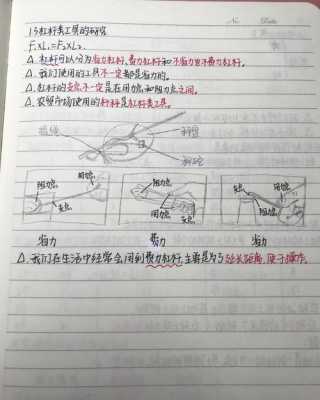 No. Date
1.3杠杆类工具的研究
F₁×L₁=F₂×L₂.
△.杠杆可以分为省力杠杆,费力杠杆和不省力也不费力杠杆。
△.我们使用的工具不一定都是省力的。
△.杠杆的支点不一定是在用力点和阻力点之间。
△.农贸市场使用的杆秤是杠杆类工具。
阻力点 用力点 用力点
阻力点 支点 用力点 支点 阻力点
省力 费力 省力
△.我们在生活中经常会用到费力杠杆,主要是为了延长距离,便于操作。